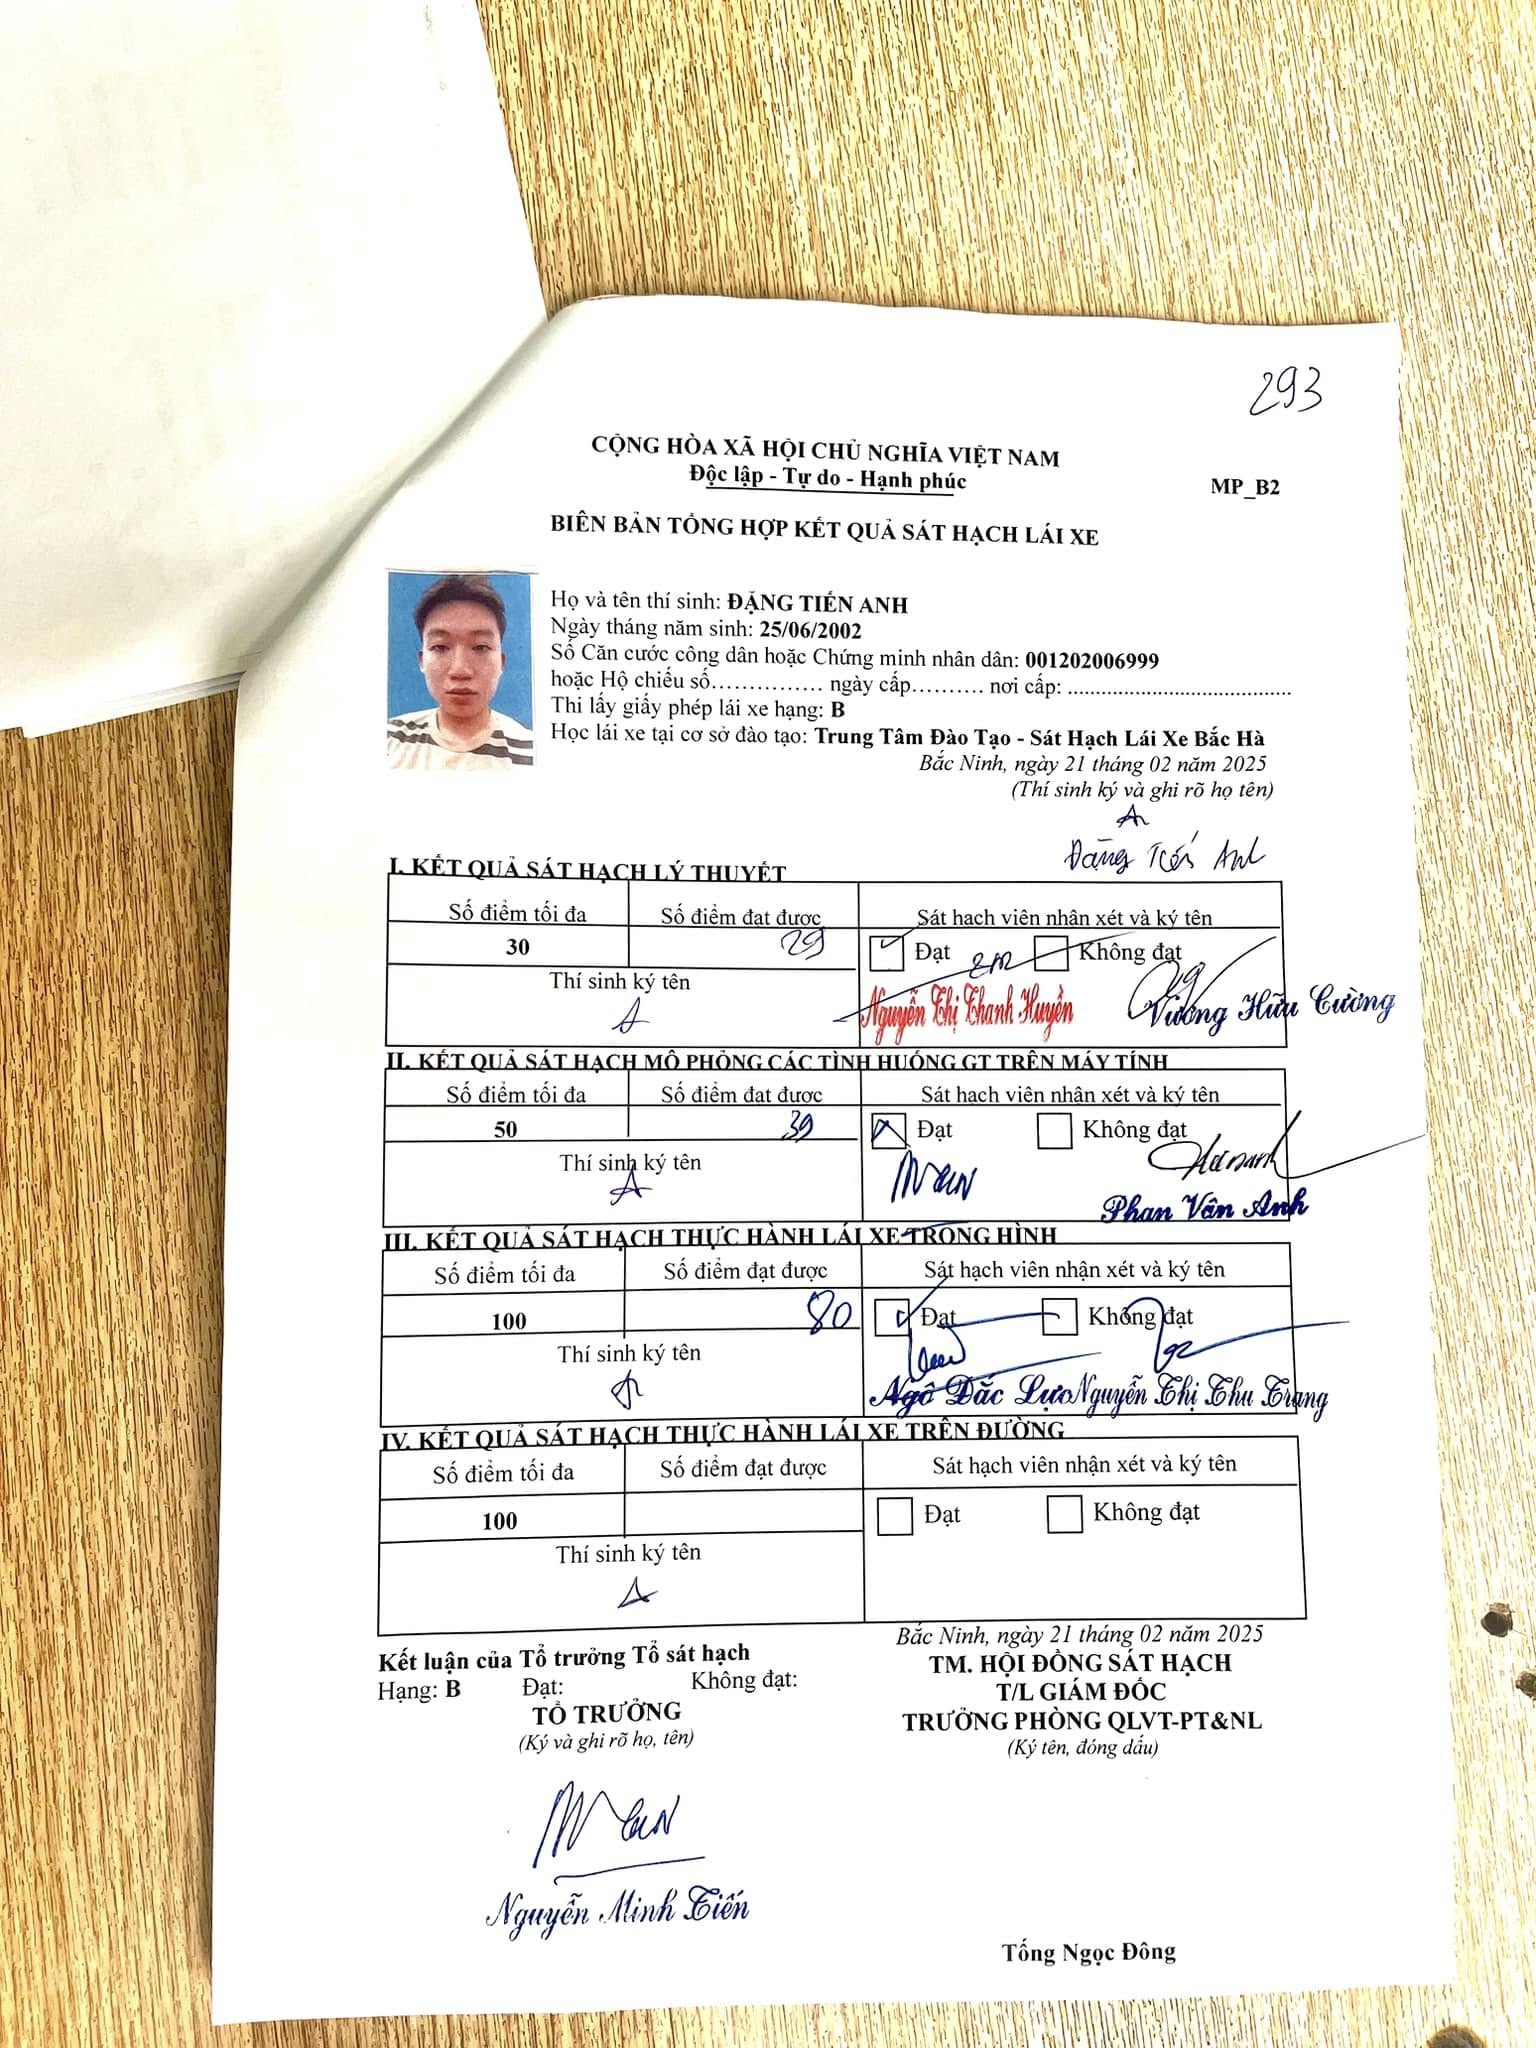 293
CỘNG HÒA XÃ HỘI CHỦ NGHĨA VIỆT NAM
Độc lập - Tự do - Hạnh phúc
MP_B2
BIÊN BẢN TỔNG HỢP KẾT QUẢ SÁT HẠCH LÁI XE
Họ và tên thí sinh: ĐẶNG TIẾN ANH
Ngày tháng năm sinh: 25/06/2002
Số Căn cước công dân hoặc Chứng minh nhân dân: 001202006999
hoặc Hộ chiếu số............... ngày cấp.......... nơi cấp: ........................................
Thi lấy giấy phép lái xe hạng: B
Học lái xe tại cơ sở đào tạo: Trung Tâm Đào Tạo - Sát Hạch Lái Xe Bắc Hà
Bắc Ninh, ngày 21 tháng 02 năm 2025
(Thí sinh ký và ghi rõ họ tên)
Đặng Tiến Anh
I. KẾT QUẢ SÁT HẠCH LÝ THUYẾT
Số điểm tối đa Số điểm đạt được Sát hạch viên nhận xét và ký tên
30 29 Đạt Không đạt
Thí sinh ký tên
Nguyễn Thị Thanh Huyền Vương Hữu Cường
II. KẾT QUẢ SÁT HẠCH MÔ PHỎNG CÁC TÌNH HUỐNG GT TRÊN MÁY TÍNH
Số điểm tối đa Số điểm đạt được Sát hạch viên nhận xét và ký tên
50 39 Đạt Không đạt
Thí sinh ký tên
Phan Vân Anh
III. KẾT QUẢ SÁT HẠCH THỰC HÀNH LÁI XE TRONG HÌNH
Số điểm tối đa Số điểm đạt được Sát hạch viên nhận xét và ký tên
100 80 Đạt Không đạt
Thí sinh ký tên
Ngô Đắc Lực Nguyễn Thị Thu Trang
IV. KẾT QUẢ SÁT HẠCH THỰC HÀNH LÁI XE TRÊN ĐƯỜNG
Số điểm tối đa Số điểm đạt được Sát hạch viên nhận xét và ký tên
100 Đạt Không đạt
Thí sinh ký tên
Bắc Ninh, ngày 21 tháng 02 năm 2025
Kết luận của Tổ trưởng Tổ sát hạch
TM. HỘI ĐỒNG SÁT HẠCH
Hạng: B Đạt: Không đạt:
T/L GIÁM ĐỐC
TỔ TRƯỞNG
TRƯỞNG PHÒNG QLVT-PT&NL
(Ký và ghi rõ họ, tên)
(Ký tên, đóng dấu)
Nguyễn Minh Tiến
Tống Ngọc Đông